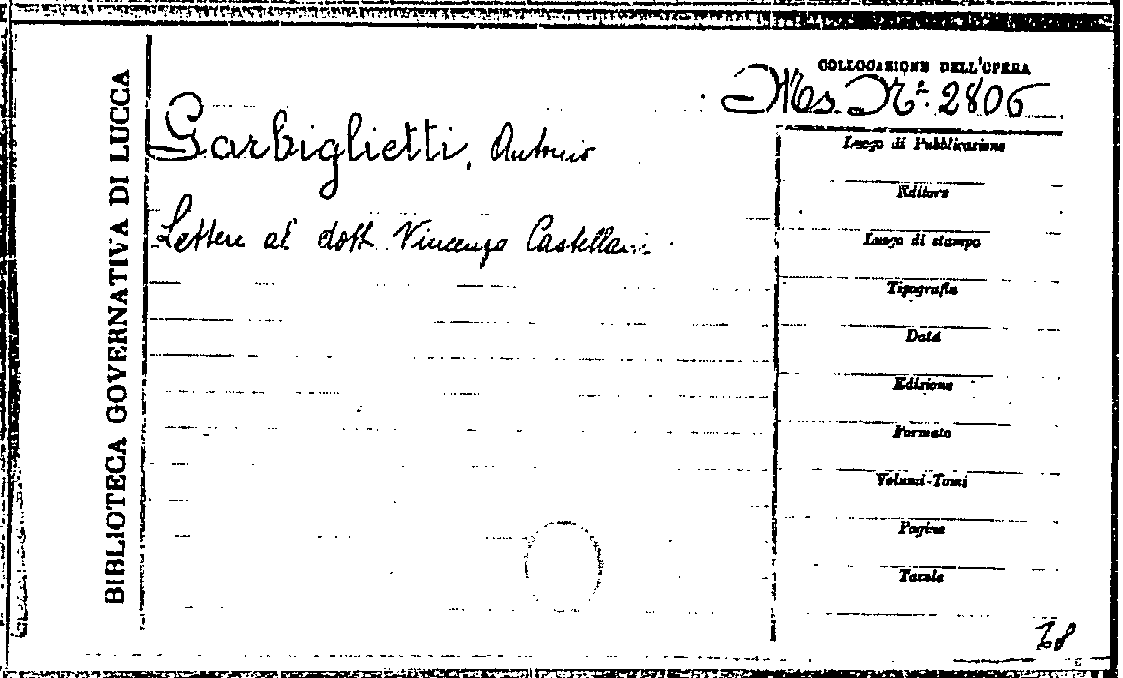 BIBLIOTECA GOVERNATIVA DI LUCCA
COLLOCAZIONE DELL'OPERA
Ms. Nº. 2806
Garbiglietti, Antonio
Lettere al dott. Vincenzo Castellani
Luogo di Pubblicazione
Editore
Luogo di stampa
Tipografia
Data
Edizione
Formato
Volumi-Tomi
Pagine
Tavole